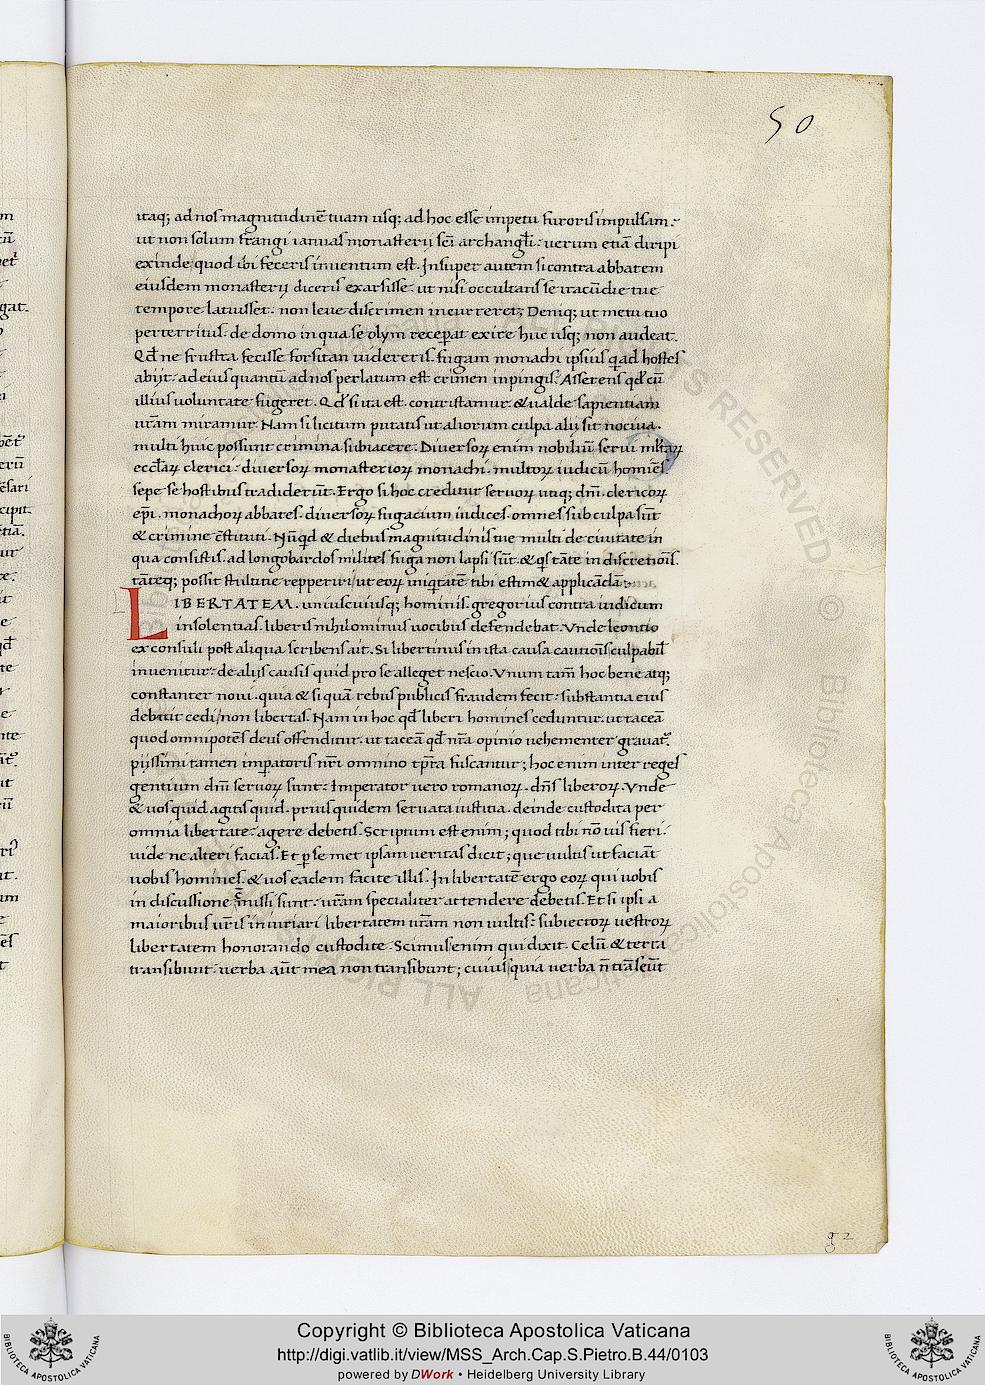 50
itaq; ad nos magnitudinē tuam usq; ad hoc esse impetu furoris impulsam.
ut non solum frangi ianuas monasterij sc̄i archangl̄i. uerum etiā diripi
exinde quod ibi feceris inuentum est. Insuper autem si contra abbatem
eiusdem monasterij diceris exarsisse. ut nisi occultans se iracūdie tue
tempore latuisset. non leue discrimen incurreret; Deniq; ut metu tuo
perterritus. de domo in qua se olym recep̄at exire huc usq; non audeat.
Qd̄ ne frustra fecisse forsitan uidereris. fugam monachi ipsius q̄ ad hostes
abijt. ad eius quantū ad nos perlatum est crimen inpingis. Asserens qd̄ cū
illius uoluntate fugeret. Qd̄ si ita est. contristamur. & ualde sapientiam
ur̄am miramur. Nam si licitum putatis ut aliorum culpa alij sit nociua.
multi huic possunt crimina subiacere. Diuersoꝝ enim nobiliū serui
eccl̄aꝝ clerici. diuersoꝝ monasterioꝝ monachi. multoꝝ iudicū homīes.
sepe se hostibus tradiderūt. Ergo si hoc creditur seruoꝝ utiq; dn̄i. clericoꝝ
ep̄i. monachoꝝ abbates. diuersoꝝ fugacium iudices. omnes sub culpa sūt
& crimine cōstituti. Nūqd̄ & diebus magnitudinis tue multi de ciuitate in
qua consistis. ad longobardos milites fuga non lapsi sūt. & qs̄ tāte indiscretiōis.
tāteq; possit stultitie repperiri ut eoꝝ iniq̄tatē tibi estim& applicādā.
LIBERTATEM. uniuscuiusq; hominis. gregorius contra iudicum
insolentias. liberis nihilominus uocibus defendebat. Vnde leontio
ex consuli post aliqua scribens ait. Si libertinus in ista causa cautiōis culpabil̄
inuenitur. de alijs causis quid pro se alleget nescio. Vnum tam̄ hoc bene atq;
constanter noui. quia & si quā rebus publicis fraudem fecit. substantia eius
debuit cedi / non libertas. Nam in hoc qd̄ liberi homines ceduntur. ut taceā
quod omnipotēs deus offenditur. ut taceā qd̄ nr̄a opinio uehementer grauat᷑.
pijssimi tamen imp̄atoris nr̄i omnino tp̄ra fuscantur; hoc enim inter reges
gentium dn̄i seruoꝝ sunt. Imperator uero romanoꝝ. dn̄s liberoꝝ. Vnde
& uos quid agitis quid. prius quidem seruata iustitia. deinde custodita per
omnia libertate. agere debetis. Scriptum est enim; quod tibi nō uis fieri.
uide ne alteri facias. Et ꝑ se met ipsam ueritas dicit; que uultis ut faciāt
uobis homines. & uos eadem facite illis. In libertatē ergo eoꝝ qui uobis
in discussione missi sunt. ur̄am specialiter attendere debetis. Et si ipsi a
maioribus ur̄is iniuriari libertatem ur̄am non uultis. subiectoꝝ uestroꝝ
libertatem honorando custodite. Scimus enim qui dixit. Celū & terra
transibunt. uerba aūt mea non transibunt; cuius quia uerba n̄ trāseūt
g 2
Copyright © Biblioteca Apostolica Vaticana
http://digi.vatlib.it/view/MSS_Arch.Cap.S.Pietro.B.44/0103
powered by DWork • Heidelberg University Library